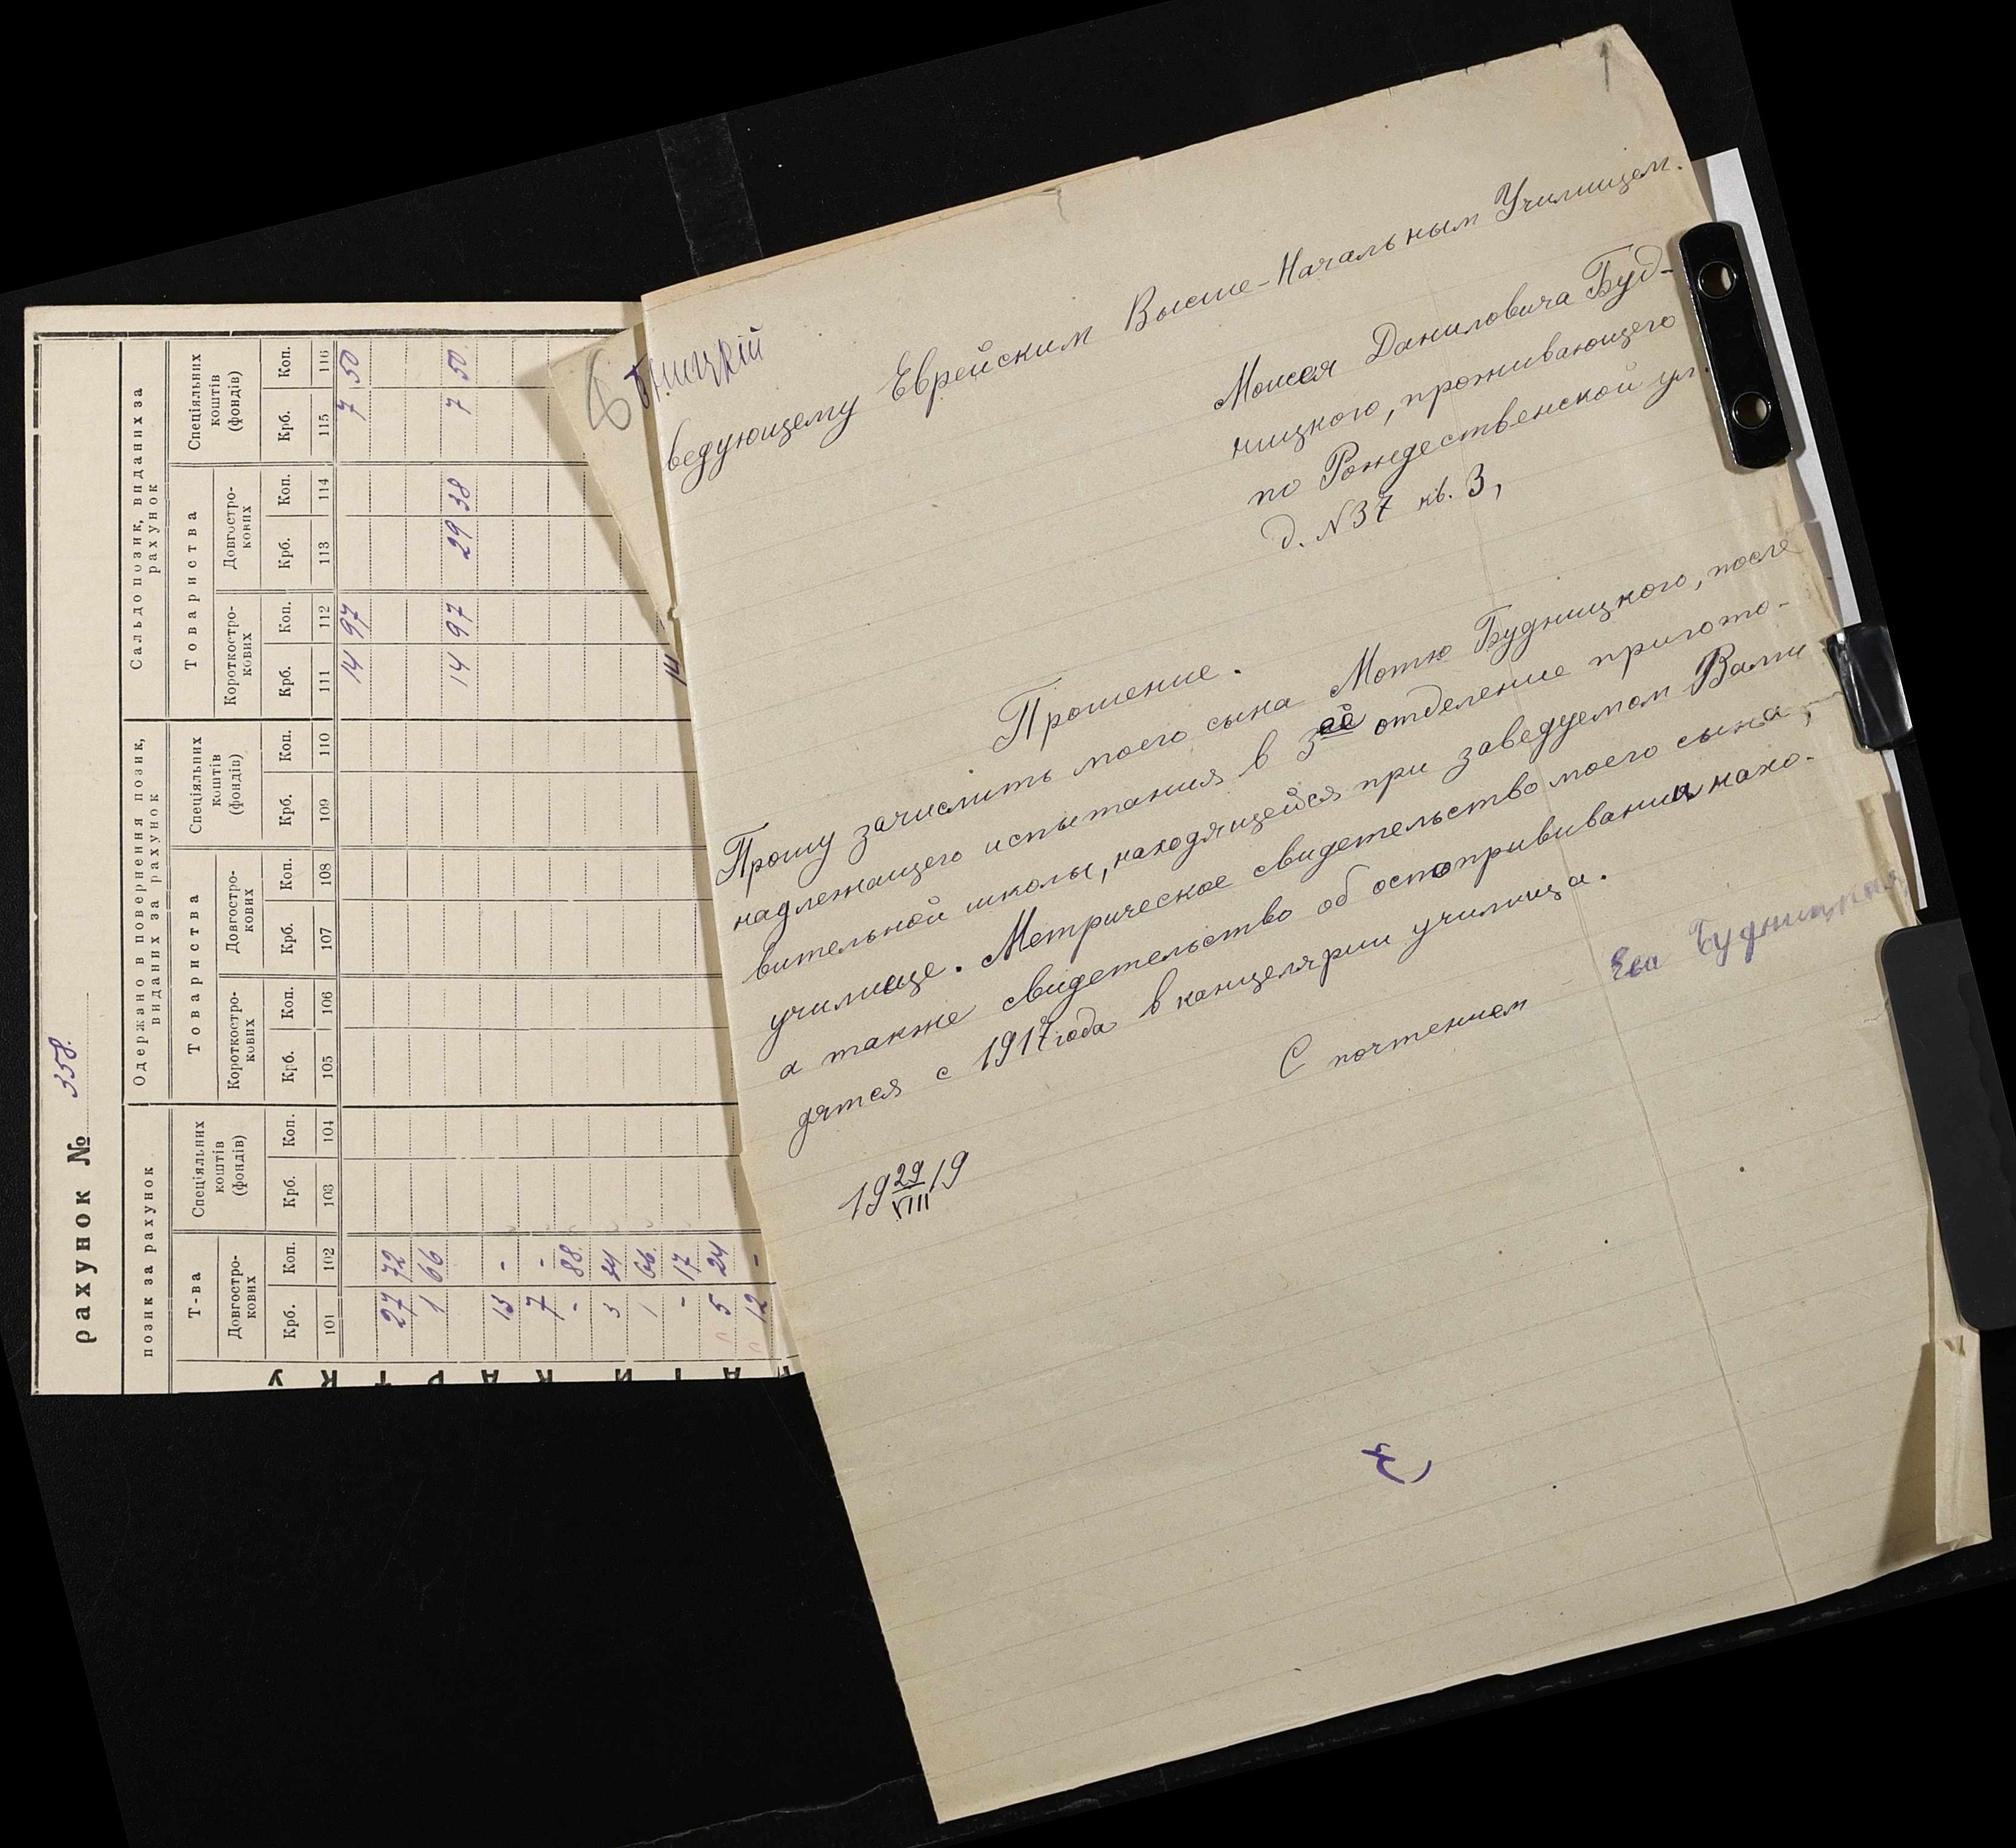 рахунок № 358.
позик за рахунок
Одержано в повернення позик, виданих за рахунок
Сальдо позик, виданих за рахунок
Т-ва
Спеціяльних коштів (фондів)
Товариства
Спеціяльних коштів (фондів)
Товариства
Спеціяльних коштів (фондів)
Довгостро-кових
Короткостро-кових
Довгостро-кових
Короткостро-кових
Довгостро-кових
Крб. Коп. Крб. Коп. Крб. Коп. Крб. Коп. Крб. Коп. Крб. Коп. Крб. Коп. Крб. Коп.
101 102 103 104 105 106 107 108 109 110 111 112 113 114 115 116
14 97 7 50
27 72
1 66
14 97 29 38 7 50
13 -
7 -
- 88
3 24
1 66
- 17
5 24
12 -
14
КАРТКУ
ницкій
1
ведующему Еврейским Высше-Начальным Училищем.
Моисея Даниловича Буд-
ницкого, проживающего
по Рождественской ул.
д. №37 кв. 3,
Прошение.
Прошу зачислить моего сына Мотю Будницкого, после
надлежащего испытания в 3ее отделение пригото-
вительной школы, находящейся при заведуемом Вами
училище. Метрическое свидетельство моего сына,
а также свидетельство об оспопрививании нахо-
дятся с 1917 года в канцелярии училища.
С почтением Ева Будницкая
19 29/VIII 19